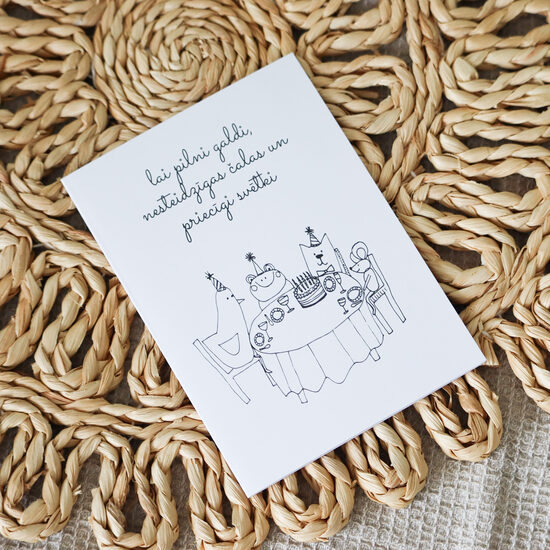 lai pilni galdi,
nesteidzīgas čalas un
priecīgi svētki